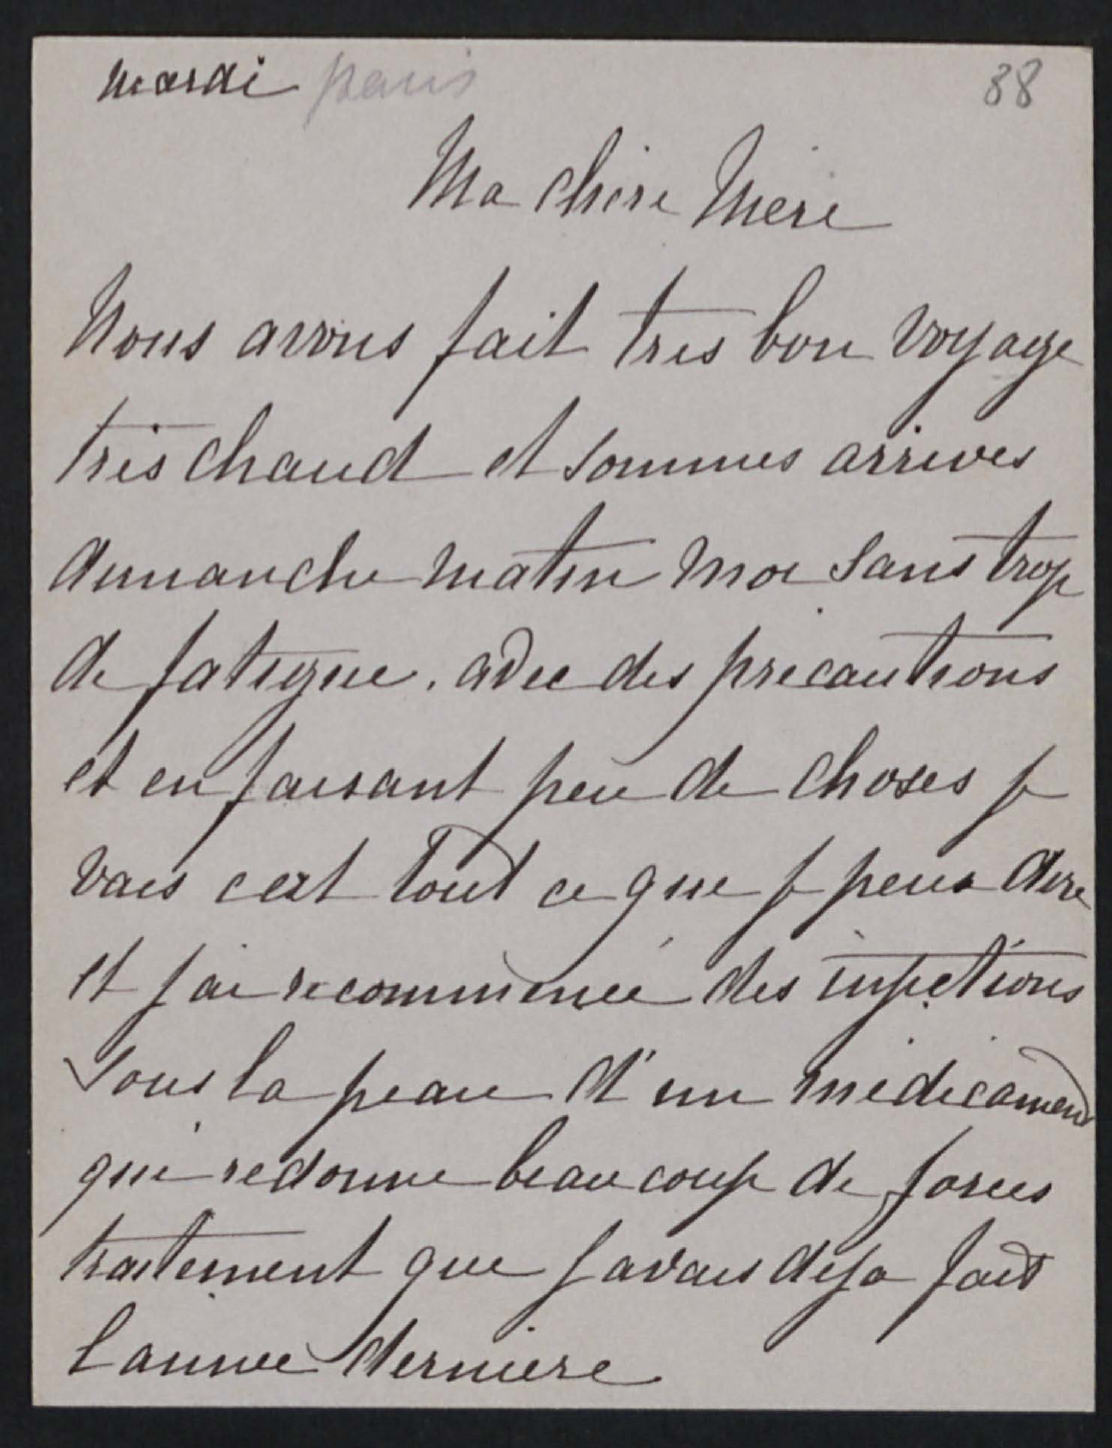 mardi paris
88
Ma chere Mere
Nous avons fait tres bon voyage
tres chaud et sommes arrives
dimanche matin moi sans trop
de fatigue. avec des precautions
et en faisant peu de choses je
vais cest tout ce que je peux dire
et jai recommencé des injections
sous la peau d'un medicament
qui redonne beaucoup de forces
traitement que javais deja fait
lannee derniere